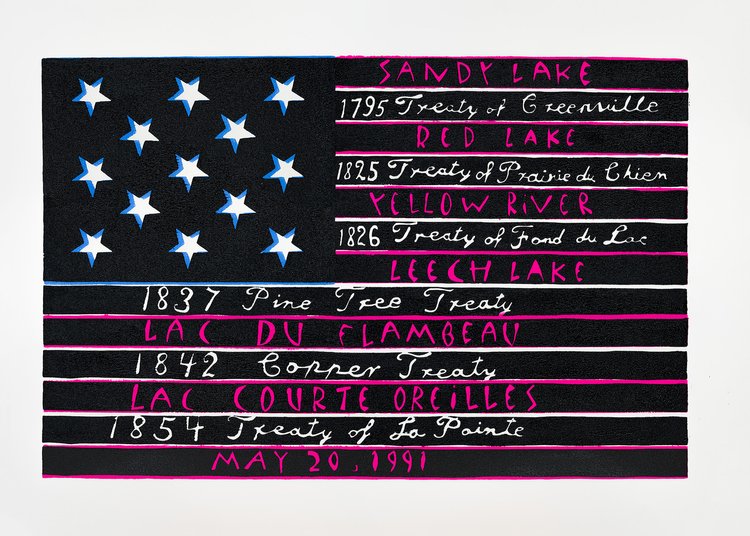 SANDY LAKE
1795 Treaty of Greenville
RED LAKE
1825 Treaty of Prairie du Chien
YELLOW RIVER
1826 Treaty of Fond du Lac
LEECH LAKE
1837 Pine Tree Treaty
LAC DU FLAMBEAU
1842 Copper Treaty
LAC COURTE OREILLES
1854 Treaty of La Pointe
MAY 20, 1991